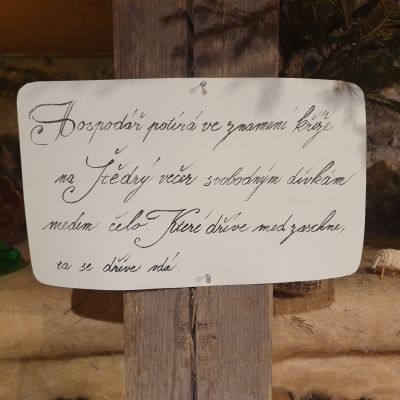 Hospodář potírá ve znamení kříže
na Štědrý večer svobodným dívkám
medem čelo. Které dříve med zaschne,
ta se dříve vdá.